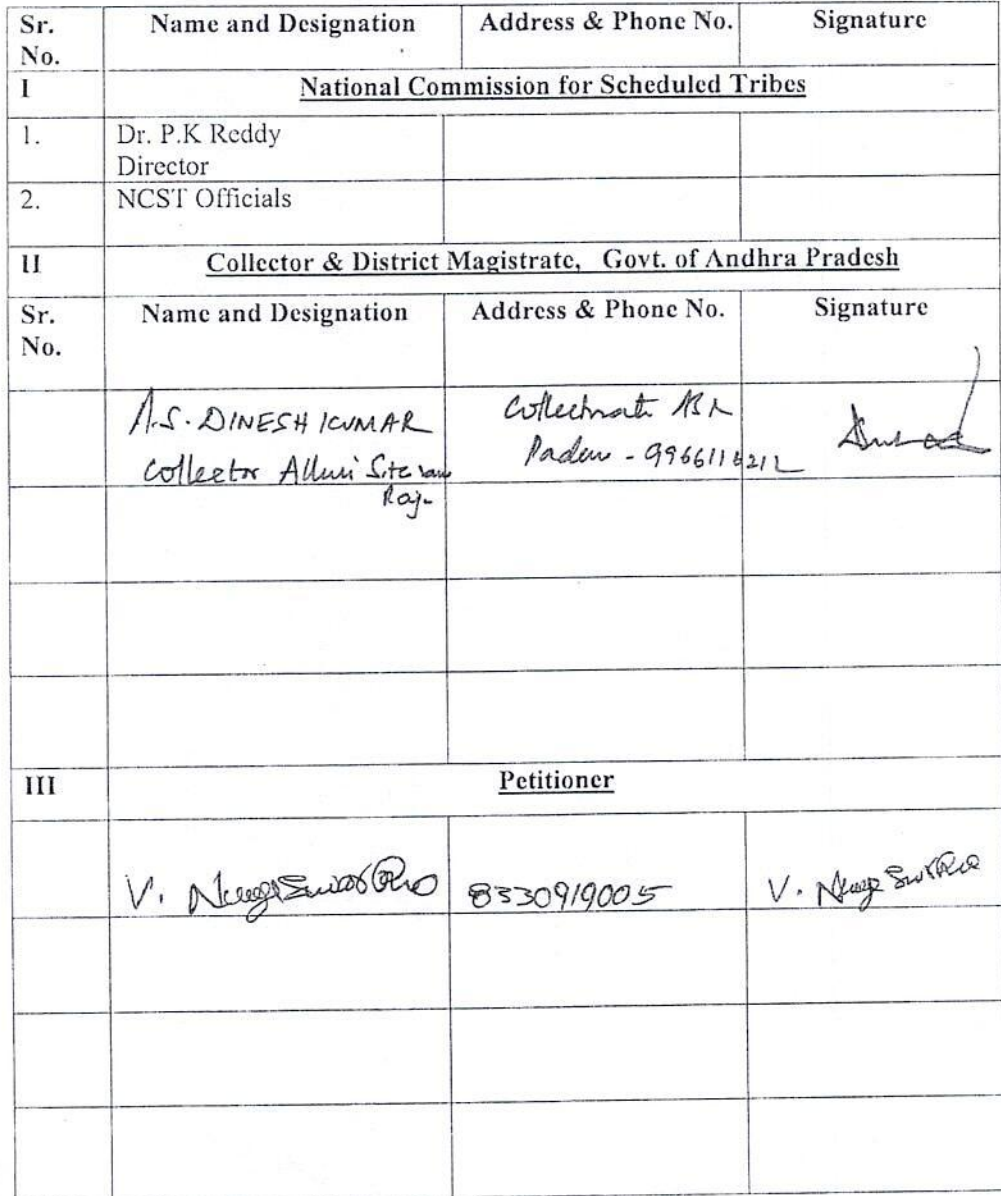 Sr. No. Name and Designation Address & Phone No. Signature
I National Commission for Scheduled Tribes
1. Dr. P.K Reddy
Director
2. NCST Officials
II Collector & District Magistrate, Govt. of Andhra Pradesh
Sr. No. Name and Designation Address & Phone No. Signature
A.S. DINESH KUMAR
Collector Alluri Sitaram
Raju
Collectorate
Paderu -
III Petitioner
V. 8330919005 V.